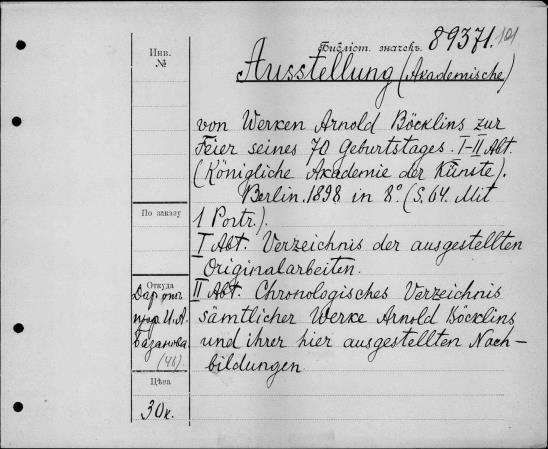 Инв.
№
Библіот. значекъ. 89371. 101
Ausstellung (Akademische)
von Werken Arnold Böcklins zur
Feier seines 70 Geburtstages. I-II Abt.
(Königliche Akademie der Künste).
Berlin. 1898 in 8° (S. 64. Mit
1 Portr.).
I Abt. Verzeichnis der ausgestellten
Originalarbeiten.
II Abt. Chronologisches Verzeichnis
sämtlicher Werke Arnold Böcklins
und ihrer hier ausgestellten Nach-
bildungen
По заказу
Откуда
Даръ отъ
проф. И. А.
Базанова
(46)
Цѣна
30к.